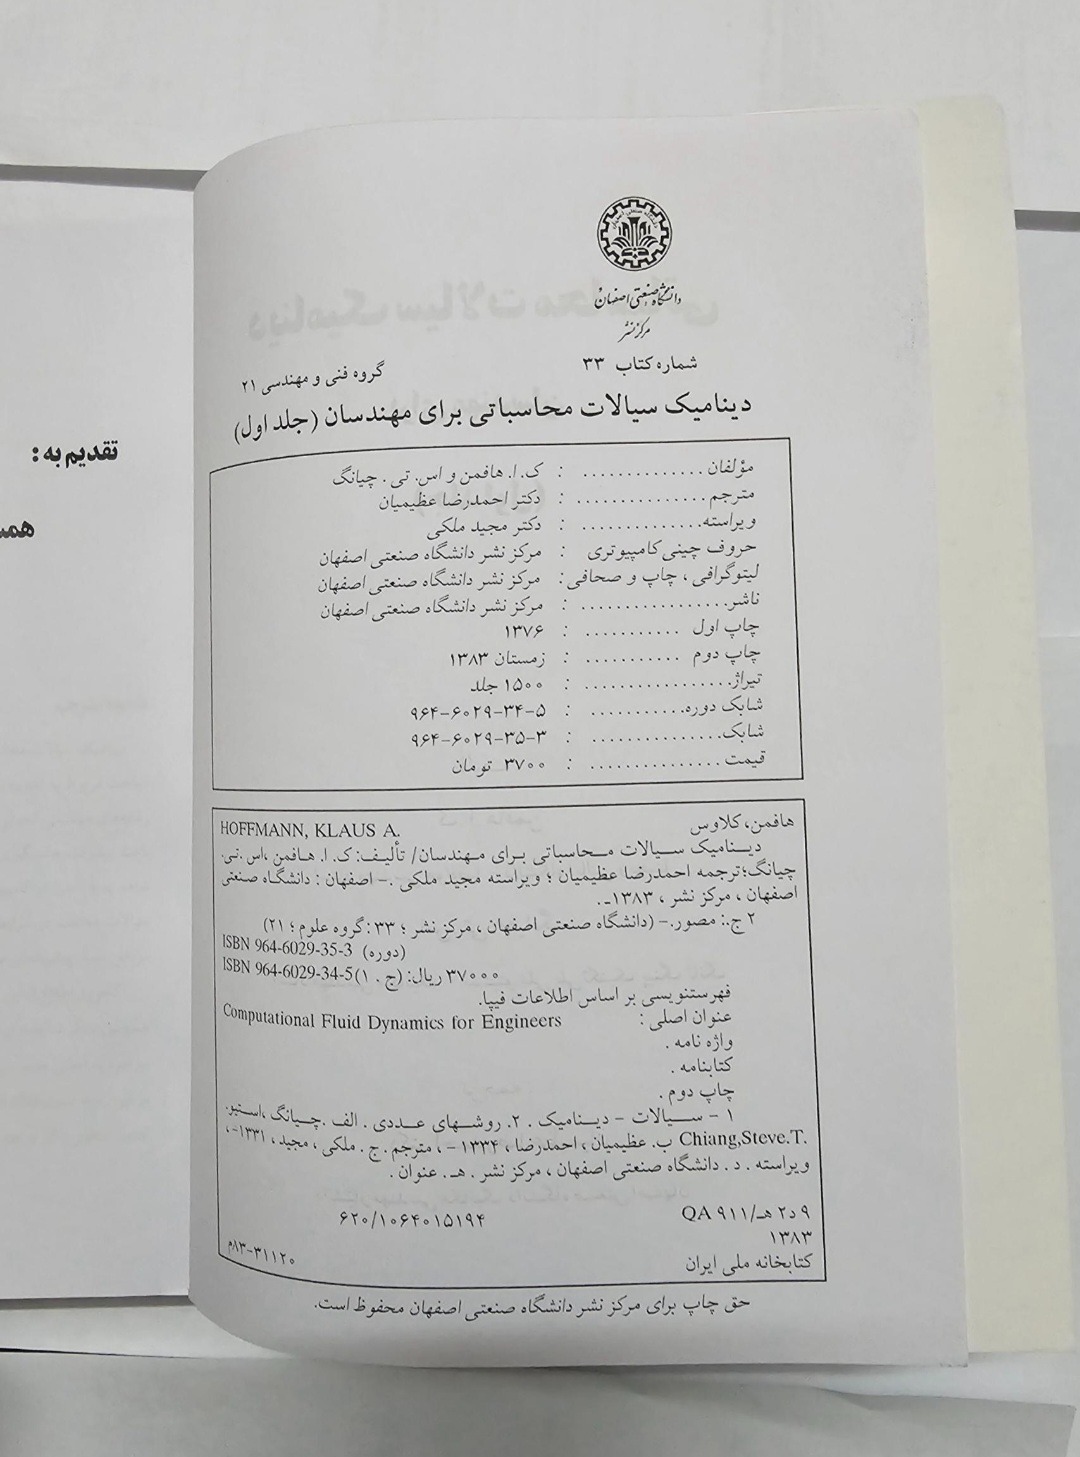 دانشگاه صنعتی اصفهان
مرکز نشر
شماره کتاب ۳۳
گروه فنی و مهندسی ۲۱
دینامیک سیالات محاسباتی برای مهندسان (جلد اول)
مؤلفان .............. : ک. ا. هافمن و اس. تی. چیانگ
مترجم ............... : دکتر احمدرضا عظیمیان
ویراسته.............. : دکتر مجید ملکی
حروف چینی کامپیوتری : مرکز نشر دانشگاه صنعتی اصفهان
لیتوگرافی ، چاپ و صحافی : مرکز نشر دانشگاه صنعتی اصفهان
ناشر................. : مرکز نشر دانشگاه صنعتی اصفهان
چاپ اول ........... : ۱۳۷۶
چاپ دوم ........... : زمستان ۱۳۸۳
تیراژ................. : ۱۵۰۰ جلد
شابک دوره........... : ۹۶۴-۶۰۲۹-۳۴-۵
شابک............... : ۹۶۴-۶۰۲۹-۳۵-۳
قیمت ............... : ۳۷۰۰ تومان
هافمن، کلاوس HOFFMANN, KLAUS A.
دینامیک سیالات محاسباتی برای مهندسان/ تألیف: ک. ا. هافمن ،اس. تی.
چیانگ؛ ترجمه احمدرضا عظیمیان ؛ ویراسته مجید ملکی .– اصفهان : دانشگاه صنعتی
اصفهان ، مرکز نشر ، ۱۳۸۳ـ.
۲ ج.: مصور.– (دانشگاه صنعتی اصفهان ، مرکز نشر ؛ ۳۳ : گروه علوم ؛ ۲۱)
ISBN 964-6029-35-3 (دوره)
۳۷۰۰۰ ریال: (ج . ۱) ISBN 964-6029-34-5
فهرستنویسی بر اساس اطلاعات فیپا.
عنوان اصلی : Computational Fluid Dynamics for Engineers
واژه نامه .
کتابنامه .
چاپ دوم .
۱ - سیالات – دینامیک . ۲. روشهای عددی . الف .چیانگ ،استیو.
Chiang,Steve.T. ب. عظیمیان ، احمدرضا ، ۱۳۳۴ -، مترجم . ج . ملکی ، مجید ، ۱۳۳۱-،
ویراسته . د . دانشگاه صنعتی اصفهان ، مرکز نشر . هـ . عنوان .
۹ د۲ هـ/ QA ۹۱۱ ۶۲۰/۱۰۶۴۰۱۵۱۹۴
۱۳۸۳
کتابخانه ملی ایران ۸۳-۳۱۱۲۰م
حق چاپ برای مرکز نشر دانشگاه صنعتی اصفهان محفوظ است.
تقدیم به :